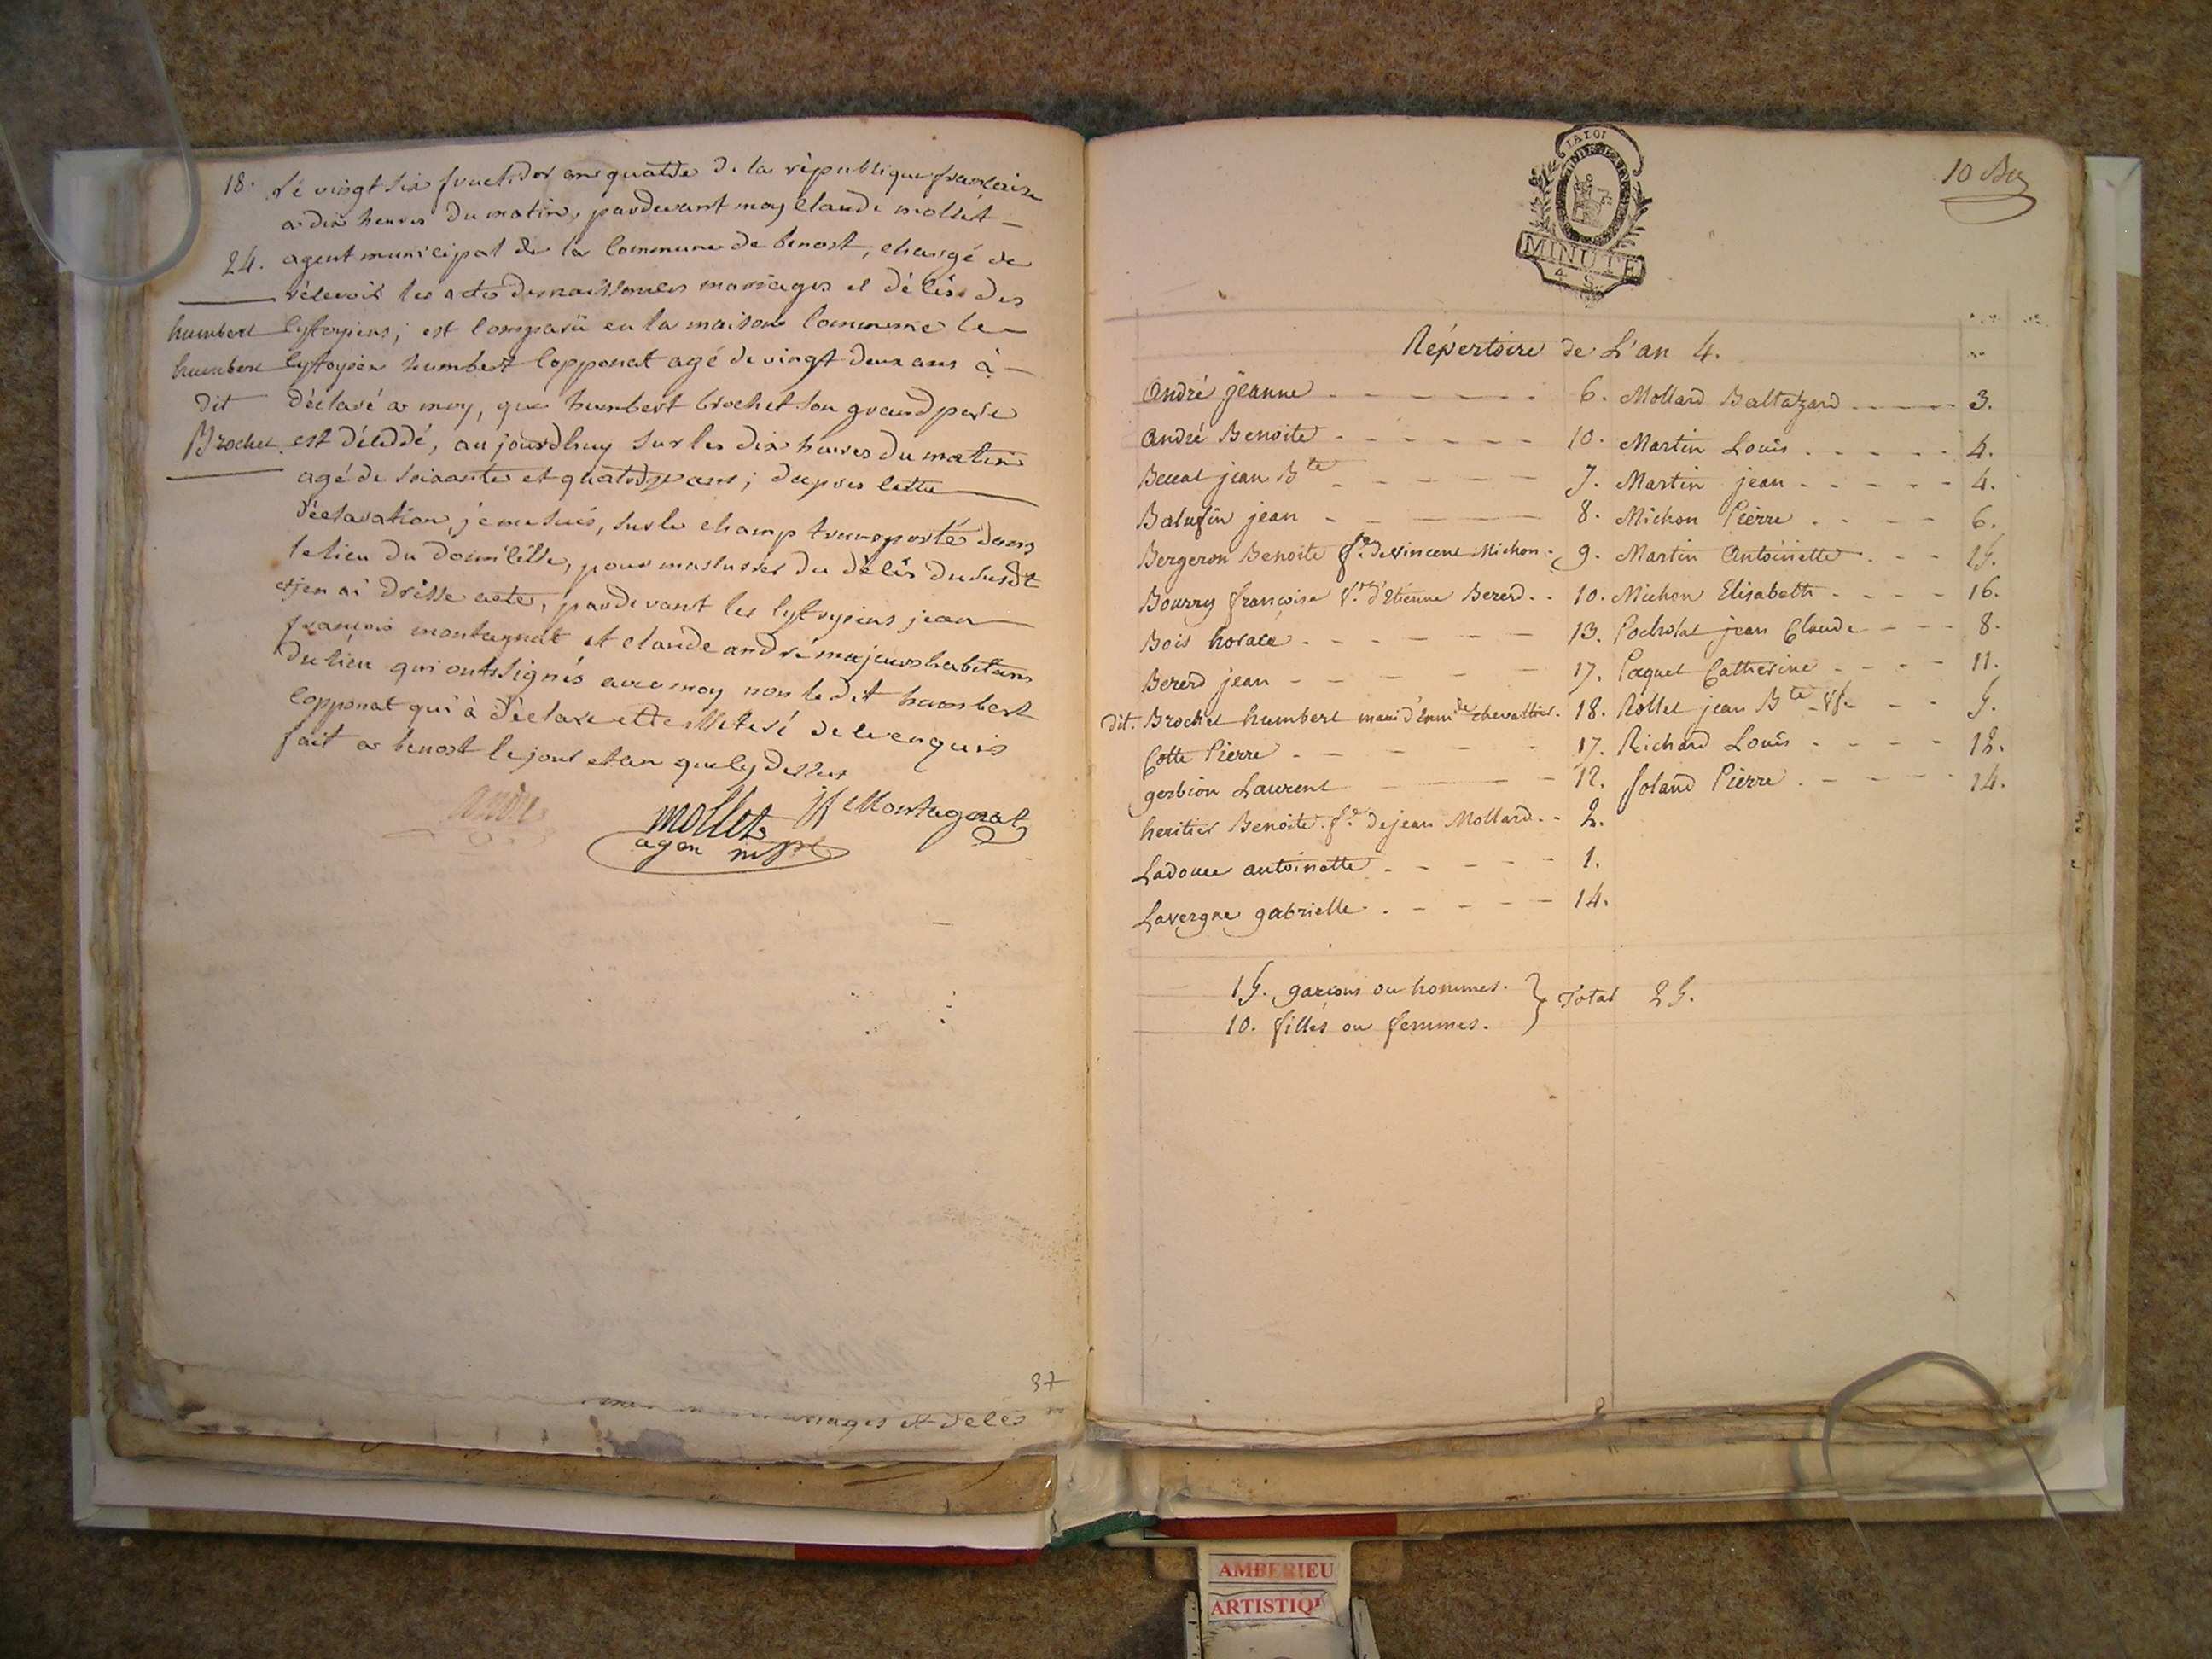 18. Le vingt six fructidor an quatre de la république francaise
a dix heures du matin, pardevant moy Claude mollet
24. agent municipal de la Commune de benost, chargé de
récevoir les actes des naissances mariages et décés des
humbert cytoyens; est comparü en la maison Commune le
humbert cytoyen humbert Copponat agé de vingt deux ans à
dit déclaré a moy, que humbert brochet son grand pere
Brochet. est décéddé, aujourdhuy sur les dix heures du matin
agé de soixante et quatorze ans; dapres cette
déclaration, je me suis, sur le champ transporté dans
le lieu du domicille, pour massurer du décés du susdt
et jen ai dréssé acte, pardevant les cytoyens jean
françois montagnat et claude andré majeurs habitans
du lieu qui ont signés avec moy non le dit humbert
Copponat qui à déclaré etre illeteré de ce enquis
fait a benost le jour et an que cy dessus
andré
mollet jf Montagnat
agen mpl
37
mariages et décés
LA LOI
MINUTE
4 S.
10
Répertoire de L'an 4.
André jeanne 6. Mollard Baltazard 3.
André Benoite 10. Martin Louis 4.
Beccat jean Bte 7. Martin jean 4.
Balufin jean 8. Michon Pierre 6.
Bergeron Benoite fe. de vincent Michon 9. Martin Antoinette 15.
Bourry françoise Ve. d'Etienne Bererd 10. Michon Elisabeth 16.
Bois horace 13. Pocholat jean Claude 8.
Bererd jean 17. Paquet Catherine 11.
dit. Brochet humbert mari d'Enmde chevallier. 18. Rollet jean Bte 5.
Cotte Pierre 17. Richard Louis 12.
gerbion Laurent 12. Soland Pierre 14.
heritier Benoite fe. de jean Mollard 2.
Ladouce antoinette 1.
Lavergne gabrielle 14.
15. garcons ou hommes. } Total 25.
10. filles ou femmes.
AMBERIEU
ARTISTIQU